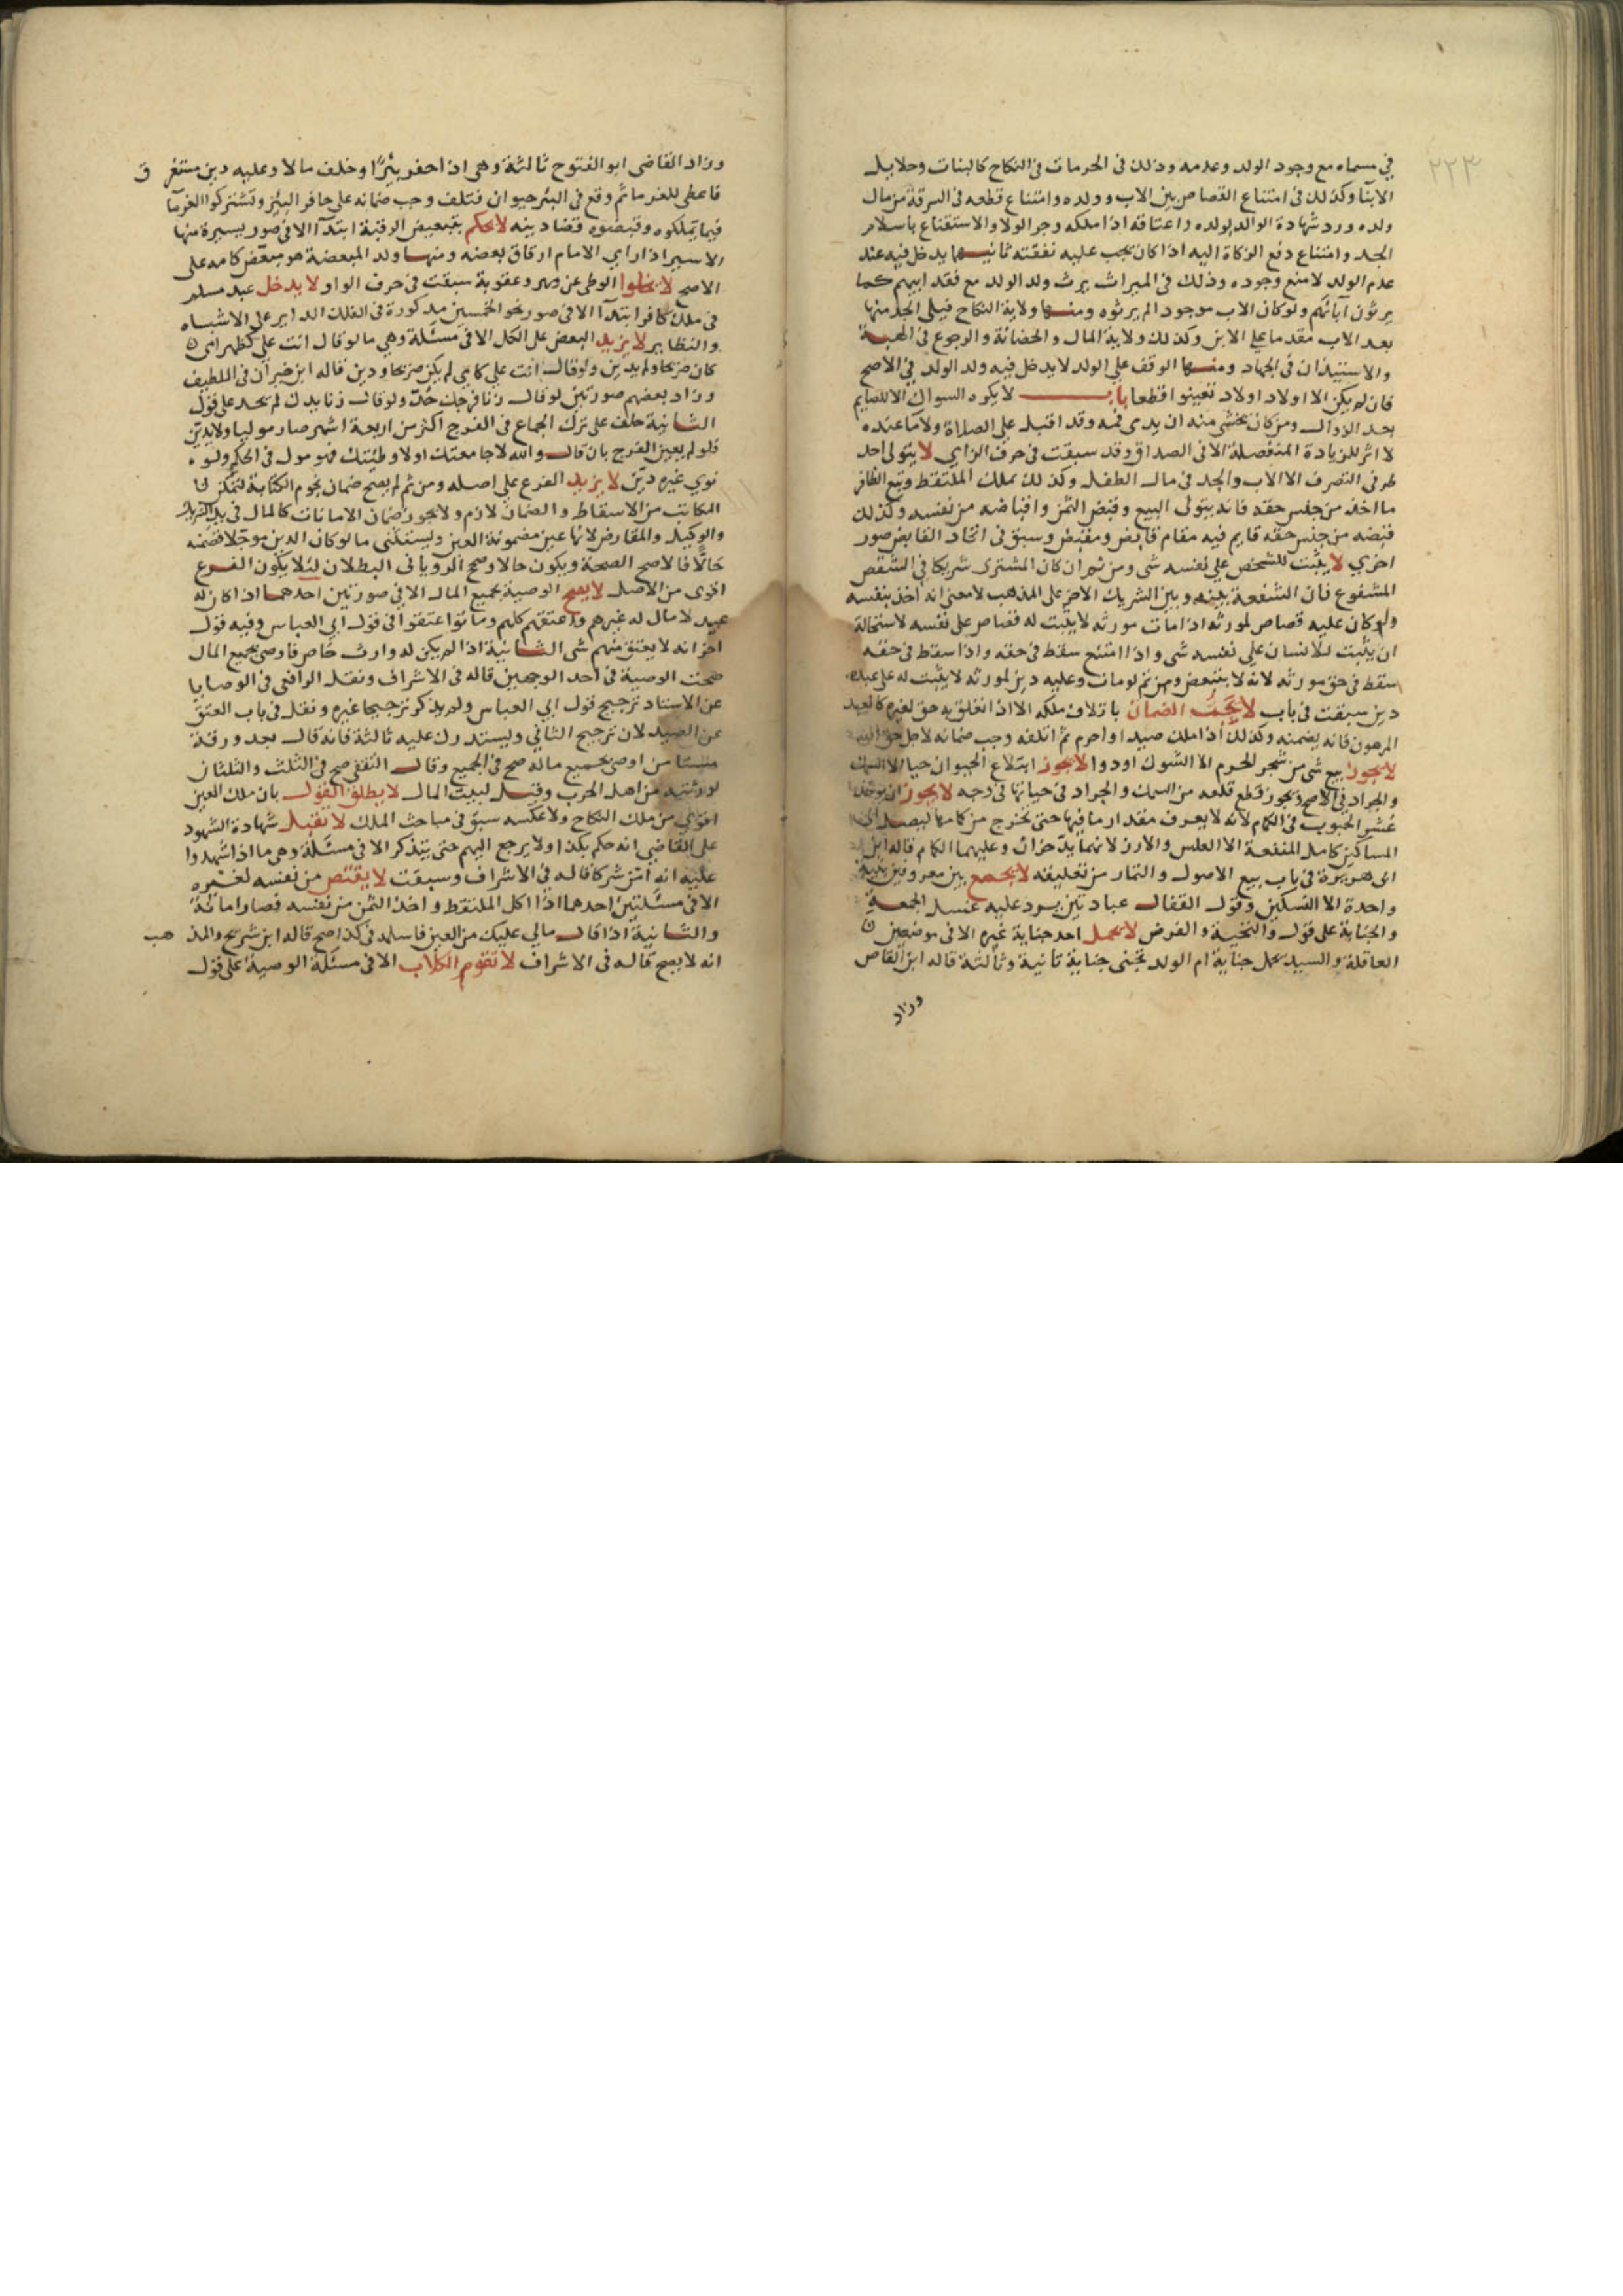 ٢٢٣
في مسماه مع وجود الولد وعدمه وذلك في المحرمات في النكاح كالبنات وحلايل
الابنا وكذلك في امتناع القصاص بين الاب وولده وامتناع قطعه في السرقة من مال
ولده ورد شهادة الوالد لولده واعتاقه اذا ملكه وجر الولا والاستتباع باسلام
الجد وامتناع دفع الزكاة اليه اذا كان يجب عليه نفقته ثانيها يدخل فيه عند
عدم الولد لا مع وجوده وذلك في الميراث يرث ولد الولد مع فقد ابيهم كما
يرثون آبائهم ولو كان الاب موجودا لم يرثوه ومنها ولاية النكاح فيلي الجد منها
بعد الاب مقدما علي الابن وكذلك ولاية المال والحضانة والرجوع في الهبة
والاستيذان في الجهاد ومنها الوقف علي الولد لا يدخل فيه ولد الولد في الاصح
فان لم يكن الا اولاد اولاد تعينوا قطعا باب لا يكره السواك الا للصايم
بعد الزوال ومن كان يخشي منه ان يدمى فمه وقد اقبل علي الصلاة ولا ما عنده
لا اثر للزيادة المنفصلة الا في الصداق وقد سبقت في حرف الزاي لا يتولى احد
طرفى التصرف الا الاب والجد في مال الطفل وكذلك تملك الملتقط وبيع الظافر
ما اخذ من جلس حقه فانه يتولى البيع وقبض الثمن واقباضه من نفسه وكذلك
قبضه من جنس حقه قايم فيه مقام قابض ومقبض وسبق في اتحاد القابض صور
اخري لا يثبت للشخص علي نفسه شى ومن ثم ان كان المشترى شريكا في الشقص
المشفوع فان الشفعة بينه وبين الشريك الاخر على المذهب لا معنى انه اخذ بنفسه
ولو كان عليه قصاص لمورثه اذا مات مورثه لا يثبت له قصاص على نفسه لاستحالة
ان يثبت للانسان علي نفسه شى واذا امتنع سقط في حقه واذا سقط في حقه
سقط في حق مورثه لانه لا يتبعض ومن ثم لو مات وعليه دين لمورثه لا يثبت له على عبده
دين سبقت في باب لا يجب الضمان باتلاف ملكه الا اذا تعلق به حق لغيره كالعبد
المرهون فانه يضمنه وكذلك اذا ملك صيدا او احرم ثم اتلفه وجب ضمانه لاجل حق الله
لا يجوز بيع شى من شجر الحرم الا الشوك او دوا لا يجوز ابتلاع الحيوان حيا الا السمك
والجراد في الاصح ويجوز قطع قلعه من السمك والجراد في حياتها في وجه لا يجوز ان يوخذ
عشر الحبوب في الكمام لانه لا يعرف مقدار ما فيها حتى تخرج من كامها ليصل الى
المساكين كامل المنفعة الا العلس والارز لانهما يدخران وعليهما الكام قاله ابن
ابى هريرة في باب بيع الاصول والثمار من تعليقه لا يجمع بين معروفين بنية
واحدة الا النسكين وقول القفال عبادتين يرد عليه غسل الجمعة
والجنابة على قول والتحية والفرض لا يحمل احد جناية غيره الا في موضعين
العاقلة والسيد يحمل جناية ام الولد تجنى جناية ثانية وثالثة قاله ابن القاص
وزاد
وزاد القاضى ابو الفتوح ثالثة وهى اذا حفر بئرا وخلف مالا وعليه دين مستغرق
فاعطى للغرما ثم وقع في البئر حيوان فتلف وجب ضمانه على حافر البئر وتشتركوا الغرما
فيما تملكوه وقبضوه قضا دينه لا يحكم بتبعيض الرقبة ابتدآ الا في صور يسيرة منها
الاسير اذا راي الامام ارقاق بعضه ومنها ولد المبعضة هو مبعض كامه على
الاصح لا يخلوا الوطي عن مهر وعقوبة سبقت في حرف الواو لا يدخل عبد مسلم
في ملك كافر ابتدآ الا في صور نحو الخمسين مذكورة في الفلك الداير علي الاشباه
والنظاير لا يزيد البعض على الكل الا في مسئلة وهي ما لو قال انت علي كظهر امى
كان صريحا ولم يدين ولو قال انت علي كامي لم يكن صريحا ودين قاله ابن خيران في اللطيف
وزاد بعضهم صورتين لو قال زنا فرجك حد ولو قال زنا يدك لم يحد على قول
الثانية حلف على ترك الجماع في الفرج اكثر من اربعة اشهر صار موليا ولا يدين
فلو لم يعين الفرج بان قال والله لا جامعتك اولا وطيتك فهو مول في الحكم ولو
نوي غيره دين لا يزيد الفرع علي اصله ومن ثم لم يصح ضمان نجوم الكتابة لتمكن
المكاتب من الاسقاط والضمان لازم ولا يجوز ضمان الامانات كالمال في يد الشريك
والوكيل والمقارض لانها عين مضمونة العين ويستثنى ما لو كان الدين موجلا فضمنه
حالا فالاصح الصحة ويكون حالا وصح الرويانى البطلان ليلا يكون الفرع
اقوى من الاصل لا يصح الوصية بجميع المال الا في صورتين احدهما اذا كان له
عبيد لا مال له غيرهم واعتقهم كلهم وماتوا عتقوا في قول ابي العباس وفيه قول
اخر انه لا يعتق منهم شى الثانية اذا لم يكن له وارث خاص فاوصى بجميع المال
صحت الوصية في احد الوجهين قاله في الاشراف ونقل الرافعى في الوصايا
عن الاستاد ترجيح قول ابي العباس ولم يذكر ترجيحا غيره ونقل في باب العتق
عن الصيد لان ترجيح الثاني ويستدرك عليه ثالثة فانه قال بعد ورقة
من اوصى بجميع ماله صح في الجميع وقال الثقفى صح في الثلث والثلثان
لورثته من اهل الحرب وقيل لبيت المال لا يطلق القول بان ملك العين
اقوي من ملك النكاح ولا عكسه سبق في مباحث الملك لا تقبل شهادة الشهود
على القاضي انه حكم بكذا ولا يرجع اليهم حتى يتذكر الا في مسئلة وهى ما اذا شهدوا
عليه انه امن شركا قاله في الاشراف وسبقت لا يقتص من نفسه لغيره
الا في مسئلتين احدهما اذا اكل الملتقط واخذ الثمن من نفسه فصار امانة
والثانية اذا قال مالي عليك من العين فاسلمه في كذا صح قاله ابن شريح والمذهب
انه لا يصح قاله في الاشراف لا تقوم الكلاب الا في مسئلة الوصية على قول